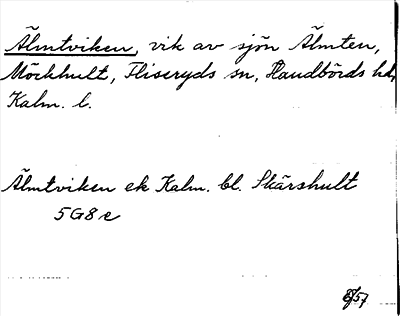 Älmtviken, vik av sjön Älmten,
Möckhult, Fliseryds sn, Handbörds hd,
Kalm. l.
Älmtviken ek Kalm. bl. Skärshult
5G8e
57